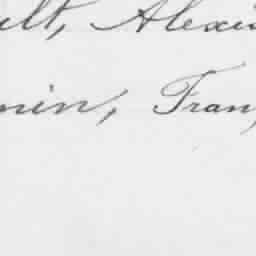 ult, Alexi
min, Fran